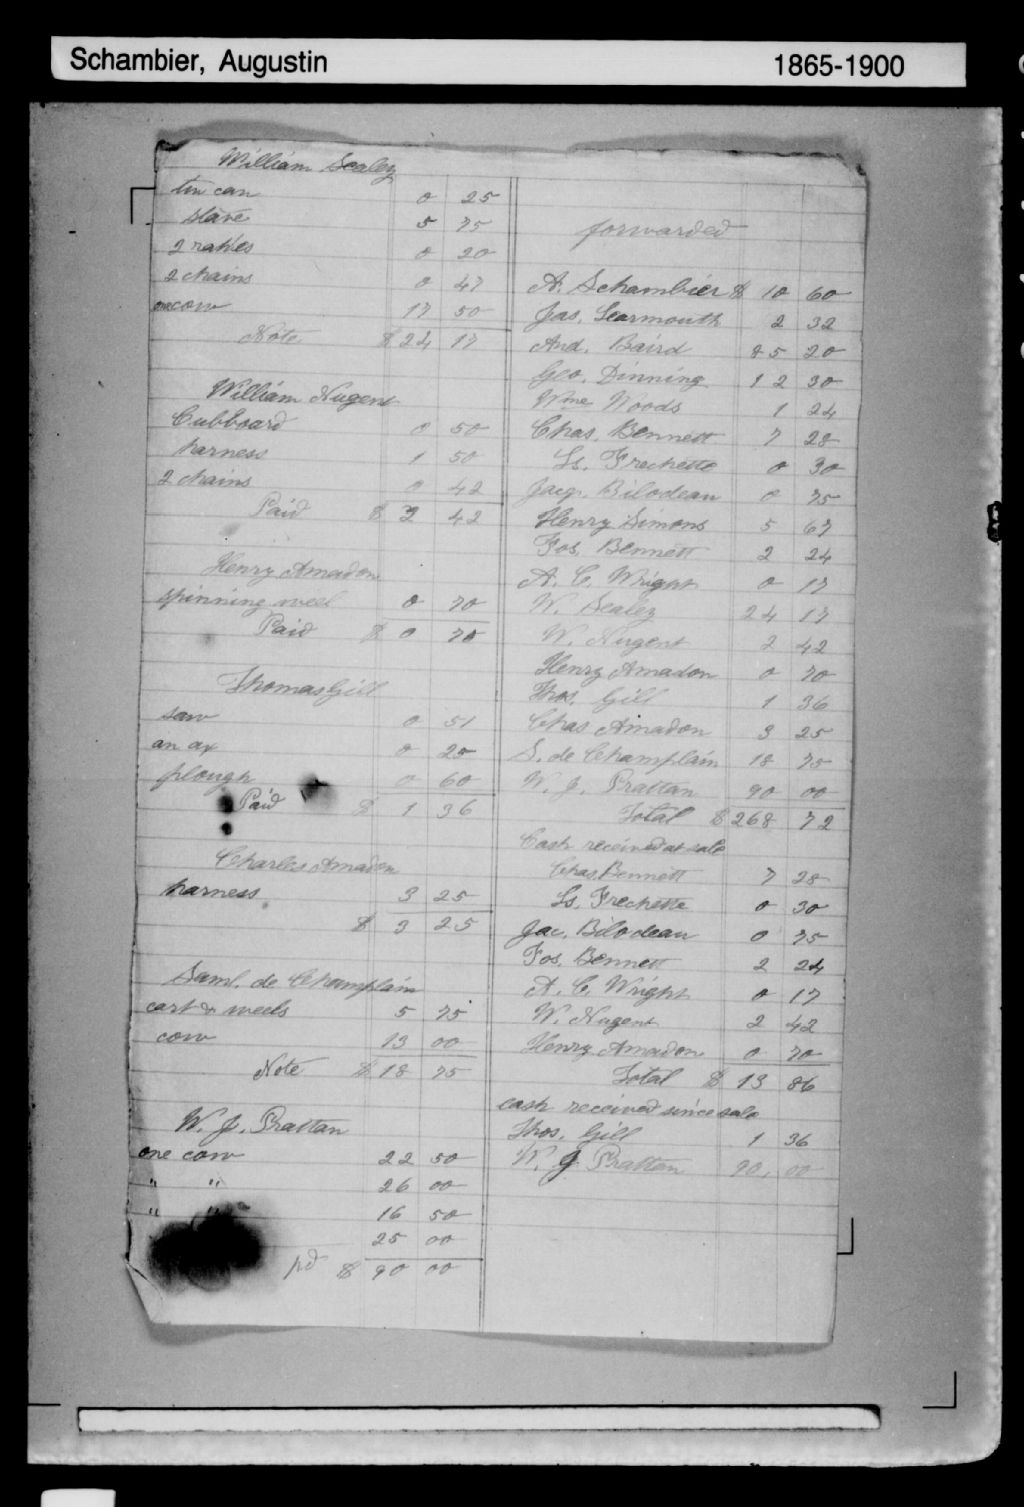 Schambier, Augustin 1865-1900
William Sealey
tin can 0 25
stave 5 75
2 rakes 0 20
2 chains 0 47
one cow 17 50
Note $ 24 17
William Nugent
Cubboard 0 50
harness 1 50
2 chains 0 42
Paid $ 2 42
Henry Amadon
spinning weel 0 70
Paid $ 0 70
Thomas Gill
saw 0 51
an ax 0 25
plough 0 60
Paid $ 1 36
Charles Amadon
harness 3 25
$ 3 25
Saml. de Champlain
cart & weels 5 75
cow 13 00
Note $ 18 75
W. J. Prattan
one cow 22 50
" " 26 00
" " 16 50
25 00
pd $ 90 00
forwarded
A. Schambier $ 10 60
Jas. Learmouth 2 32
And. Baird 85 20
Geo. Dinning 12 30
Wme Woods 1 24
Chas. Bennett 7 28
Ls. Frechette 0 30
Jacq. Bilodeau 0 75
Henry Simons 5 67
Fos. Bennett 2 24
A. C. Wright 0 17
W. Sealey 24 17
W. Nugent 2 42
Henry Amadon 0 70
Thos. Gill 1 36
Chas Amadon 3 25
S. de Champlain 18 75
W. J. Prattan 90 00
Total $ 268 72
Cash received at sale
Chas. Bennett 7 28
Ls. Frechette 0 30
Jac. Bilodeau 0 75
Fos. Bennett 2 24
A. C. Wright 0 17
W. Nugent 2 42
Henry Amadon 0 70
Total $ 13 86
cash received since sale
Thos. Gill 1 36
W. J Prattan 90, 00